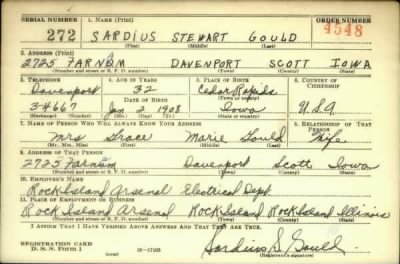 SERIAL NUMBER 1. NAME (Print) ORDER NUMBER
272 SARDIUS STEWART GOULD 4548
(First) (Middle) (Last)
2. ADDRESS (Print)
2725 FARNAM DAVENPORT SCOTT IOWA
(Number and street or R. F. D. number) (Town) (County) (State)
3. TELEPHONE 4. AGE IN YEARS 5. PLACE OF BIRTH 6. COUNTRY OF CITIZENSHIP
Davenport 32 Cedar Rapids
DATE OF BIRTH (Town or county)
34667 Jan 2 1908 Iowa U.S.A
(Exchange) (Number) (Mo.) (Day) (Yr.) (State or country)
7. NAME OF PERSON WHO WILL ALWAYS KNOW YOUR ADDRESS 8. RELATIONSHIP OF THAT PERSON
Mrs Grace Marie Gould Wife
(Mr., Mrs., Miss) (First) (Middle) (Last)
9. ADDRESS OF THAT PERSON
2725 Farnam Davenport Scott Iowa
(Number and street or R. F. D. number) (Town) (County) (State)
10. EMPLOYER'S NAME
Rock Island Arsenal Electrical Dept.
11. PLACE OF EMPLOYMENT OR BUSINESS
Rock Island Arsenal Rock Island Rock Island Illinois
(Number and street or R. F. D. number) (Town) (County) (State)
I AFFIRM THAT I HAVE VERIFIED ABOVE ANSWERS AND THAT THEY ARE TRUE.
REGISTRATION CARD
D. S. S. FORM 1 (over) Sardius S. Gould
(Registrant's signature)